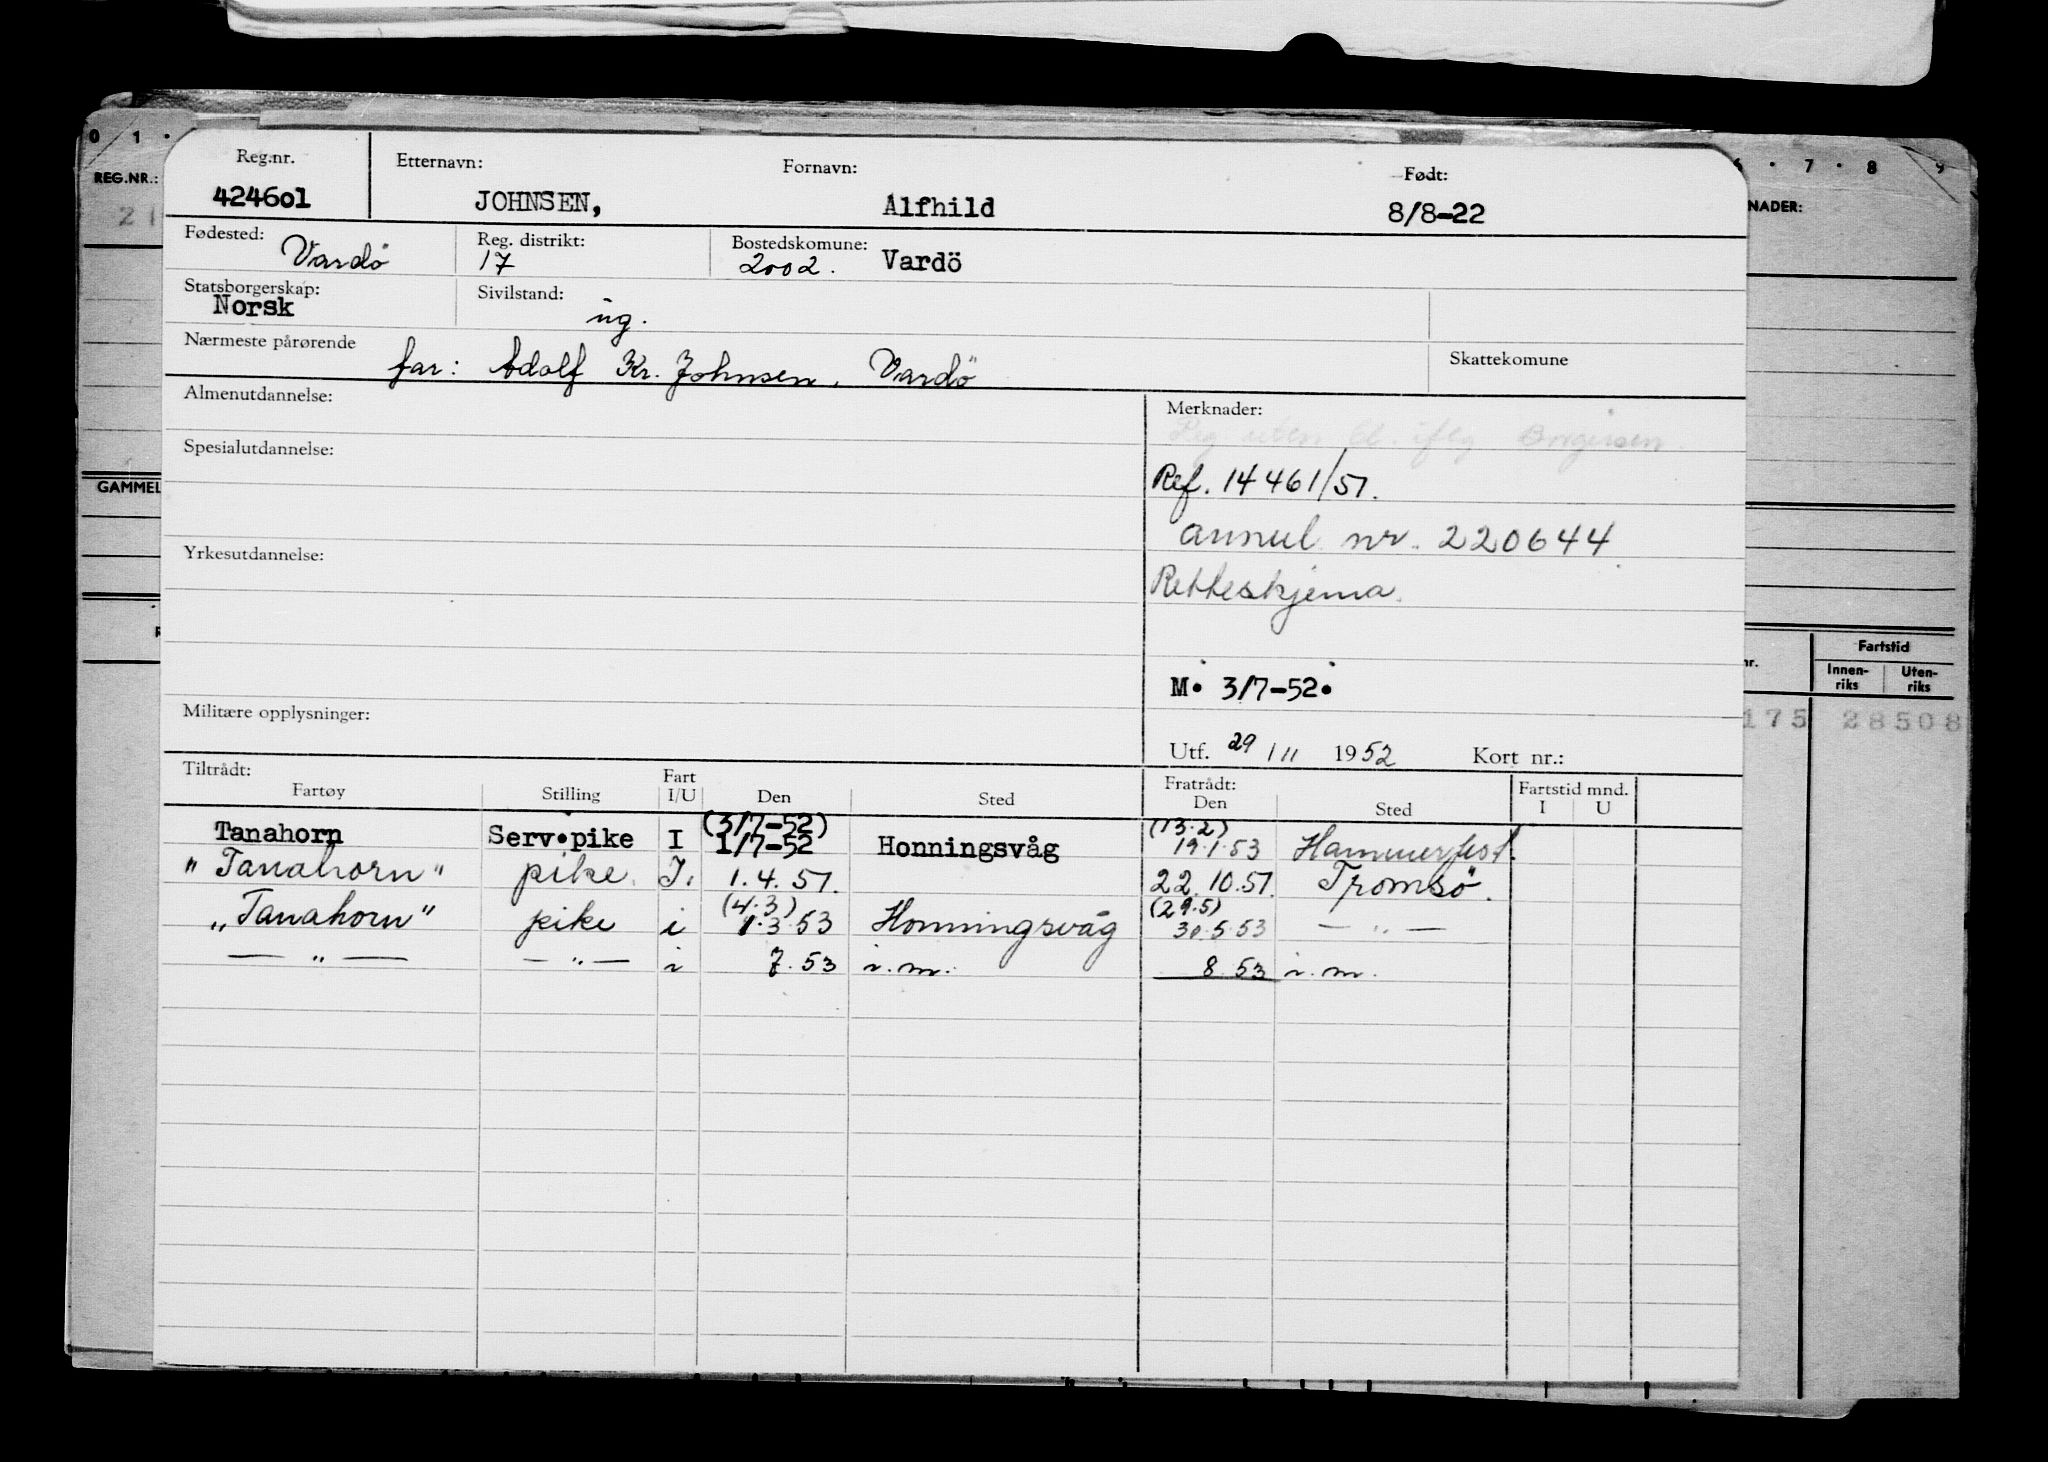 0 1 · 6 · 7 · 8 9
REG.NR.: NADER:
21
GAMMEL
Fartstid
nr. Innen- Uten-
riks riks
175 28508
Reg.nr. Etternavn: Fornavn: Født:
424601 JOHNSEN, Alfhild 8/8-22
Fødested: Reg. distrikt: Bostedskomune:
Vardö 17 2002. Vardö
Statsborgerskap: Sivilstand:
Norsk ug.
Nærmeste pårørende Skattekomune
far: Adolf Kr. Johnsen, Vardö
Almenutdannelse: Merknader:
uten
Spesialutdannelse:
Ref. 14461/51.
annul. nr. 220644
Yrkesutdannelse:
Retteskjema.
M. 3/7-52.
Militære opplysninger:
Utf. 29/11 1952 Kort nr.:
Tiltrådt: Fart Fratrådt: Fartstid mnd.
Fartøy Stilling I/U Den Sted Den Sted I U
(3/7-52) (13.2)
Tanahorn Serv.pike I 1/7-52 Honningsvåg 19.1.53 Hammerfest.
"Tanahorn" pike. I. 1.4.51. 22.10.51. Tromsö.
(4.3) (29.5)
"Tanahorn" pike i 1.3.53 Honningsvåg 30.5.53 — " —
— " — — " — i 7.53 i.m. 8.53 i.m.